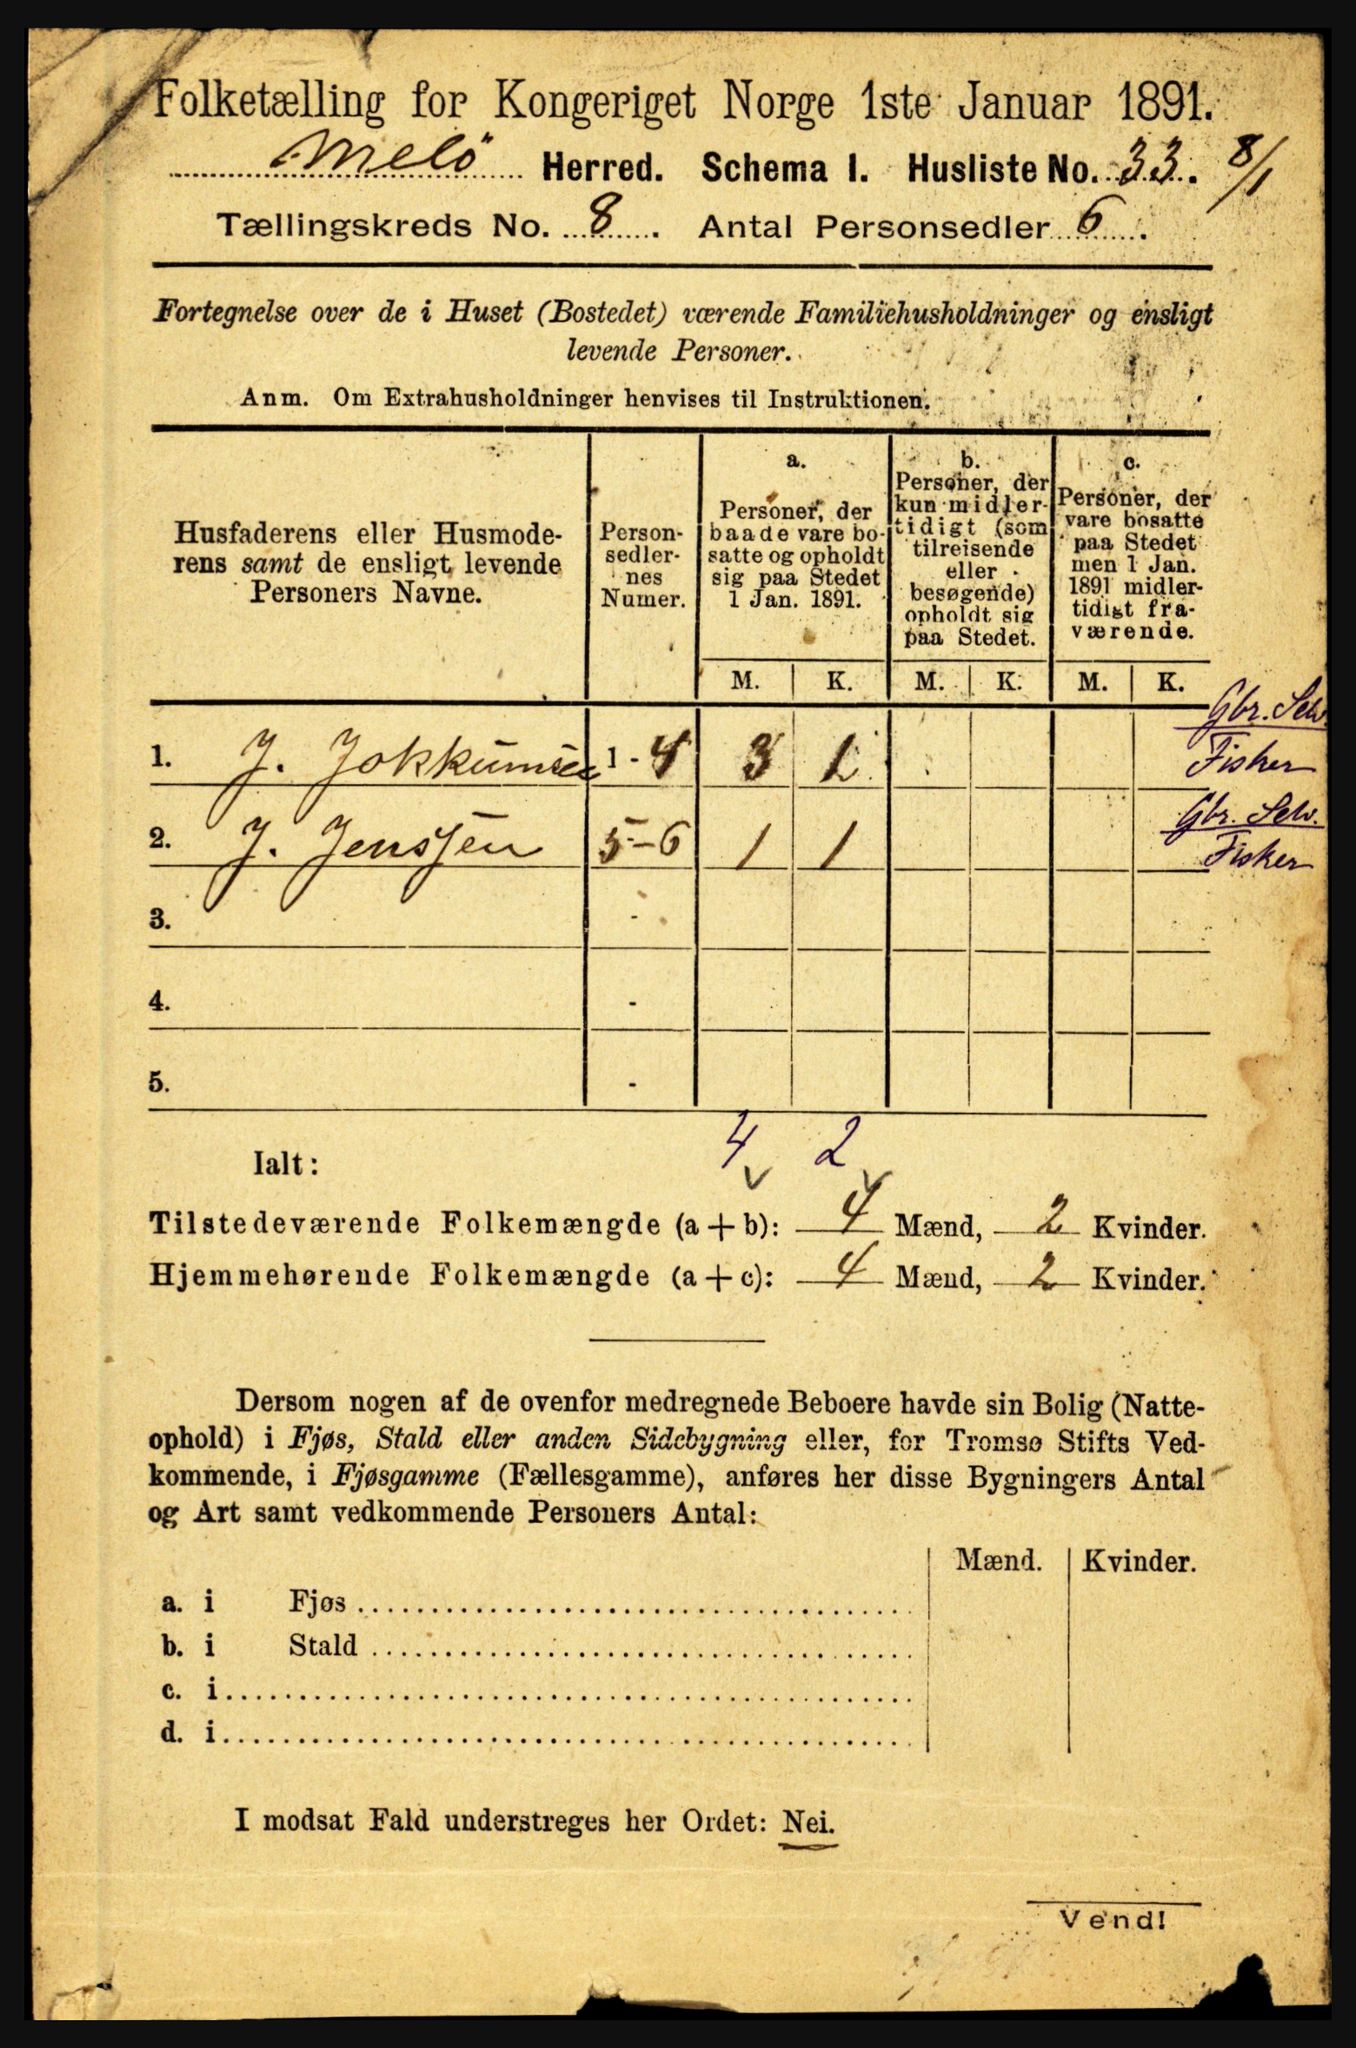 Folketælling for Kongeriget Norge 1ste Januar 1891.
Melö Herred. Schema I. Husliste No. 33. 8/1
Tællingskreds No. 8. Antal Personsedler 6.
Fortegnelse over de i Huset (Bostedet) værende Familiehusholdninger og ensligt
levende Personer.
Anm. Om Extrahusholdninger henvises til Instruktionen.
Husfaderens eller Husmode-
rens samt de ensligt levende
Personers Navne.
Person-
sedler-
nes
Numer.
a.
Personer, der
baade vare bo-
satte og opholdt
sig paa Stedet
1 Jan. 1891.
b.
Personer, der
kun midler-
tidigt (som
tilreisende
eller
besøgende)
opholdt sig
paa Stedet.
c.
Personer, der
vare bosatte
paa Stedet
men 1 Jan.
1891 midler-
tidigt fra-
værende.
M. K. M. K. M. K.
Gbr. Selv.
1. J. Jokkumsen 1 - 4 3 1 Fisker
Gbr. Selv.
2. J. Jenssen 5-6 1 1 Fisker
3. -
4. -
5. -
4 2
Ialt:
Tilstedeværende Folkemængde (a + b): 4 Mænd, 2 Kvinder.
Hjemmehørende Folkemængde (a + c): 4 Mænd, 2 Kvinder.
Dersom nogen af de ovenfor medregnede Beboere havde sin Bolig (Natte-
ophold) i Fjøs, Stald eller anden Sidebygning eller, for Tromsø Stifts Ved-
kommende, i Fjøsgamme (Fællesgamme), anføres her disse Bygningers Antal
og Art samt vedkommende Personers Antal:
Mænd. Kvinder.
a. i Fjøs
b. i Stald
c. i
d. i
I modsat Fald understreges her Ordet: Nei.
Vend!